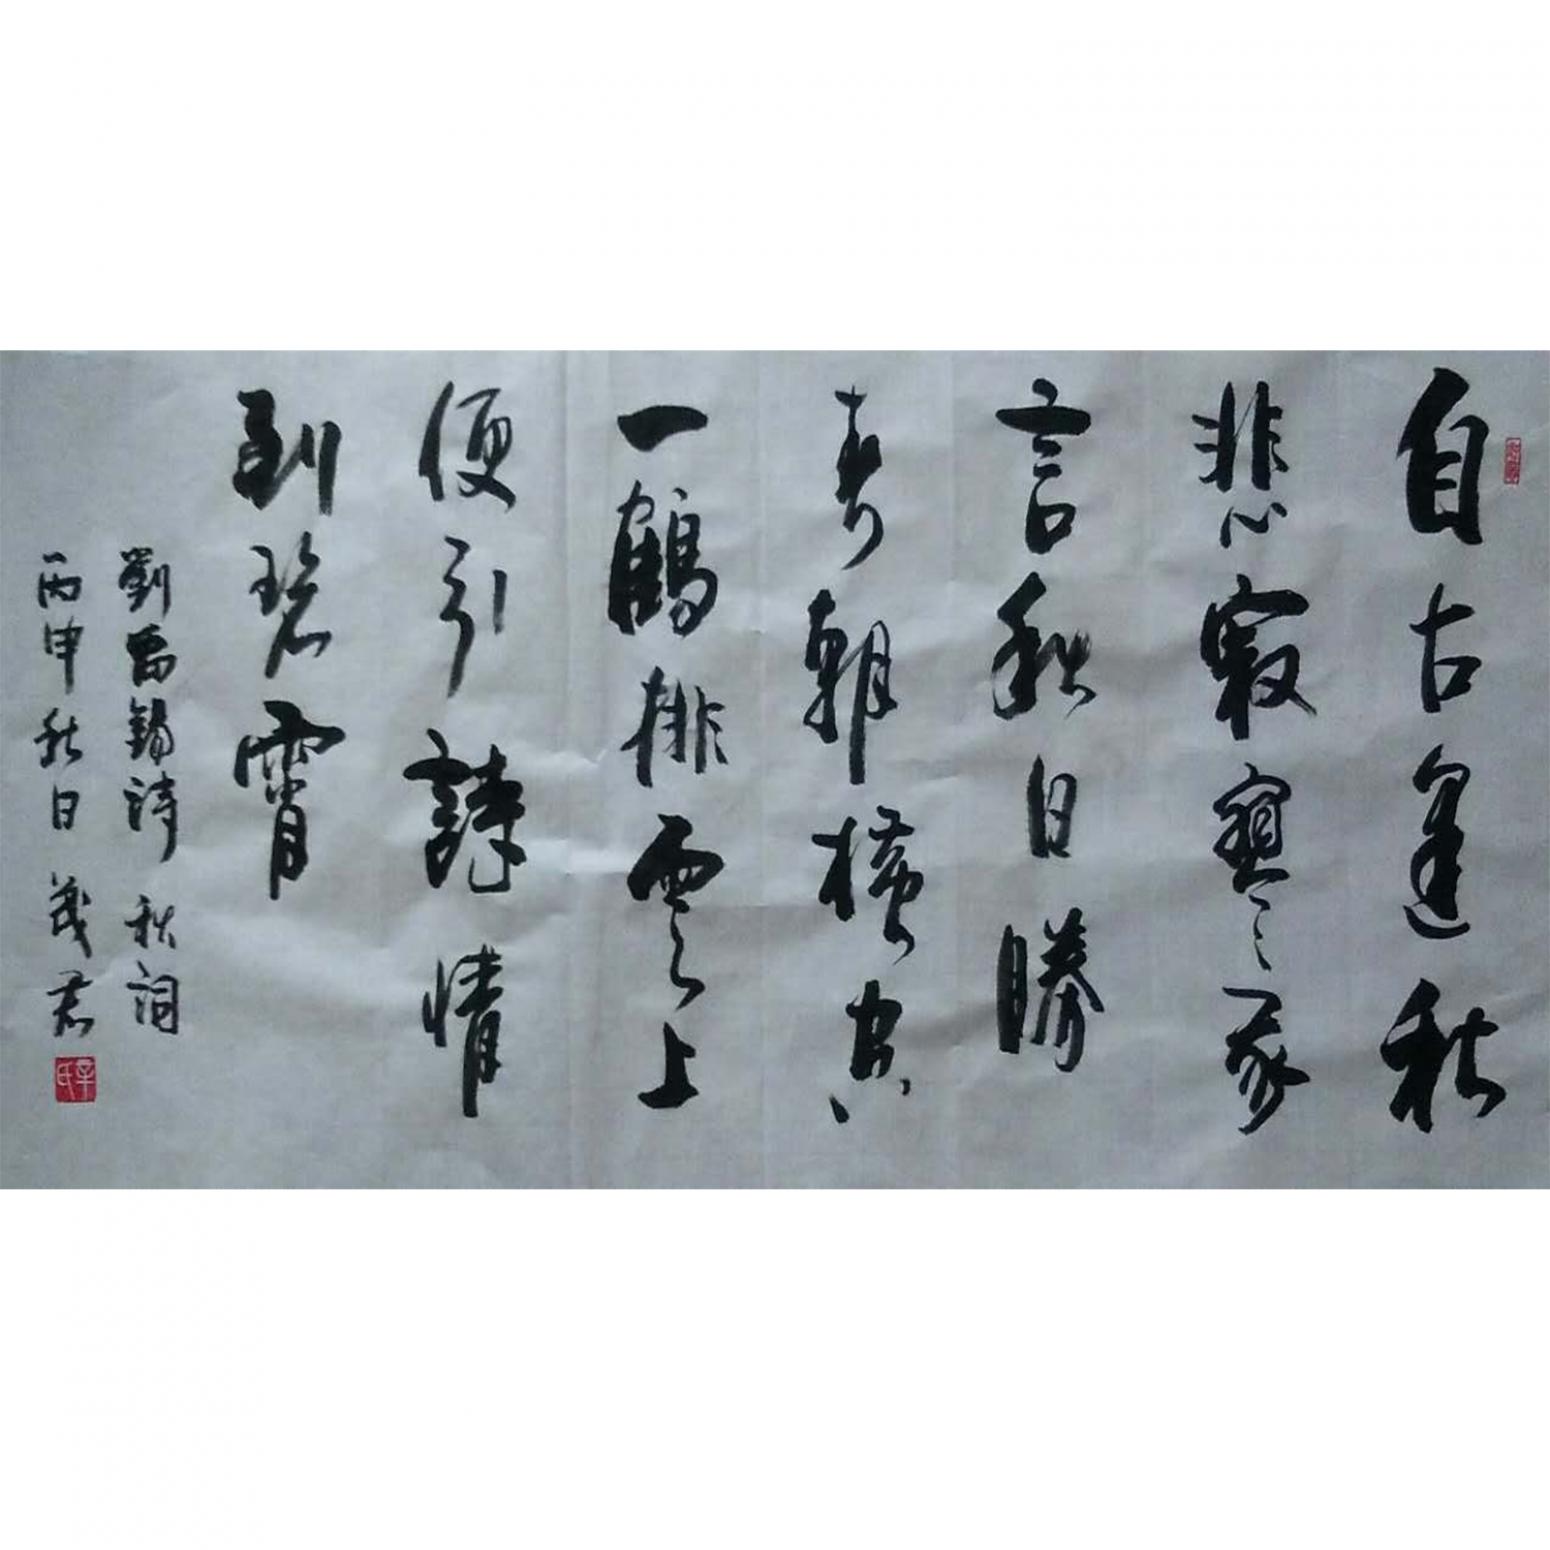 自古逢秋
悲寂寥我
言秋日勝
春朝橫空
一鶴排雲上
便引詩情
到碧霄
劉禹錫詩秋詞
丙申秋日茂君
辛氏